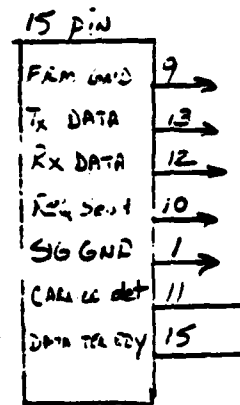 15 pin
FRM GND 9
Tx DATA 13
Rx DATA 12
Sent 10
SIG GND 1
det 11
DATA TER RDY 15